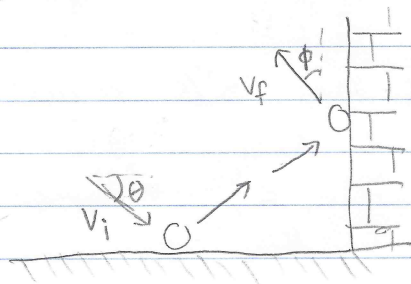 ϕ
Vf
θ
Vi